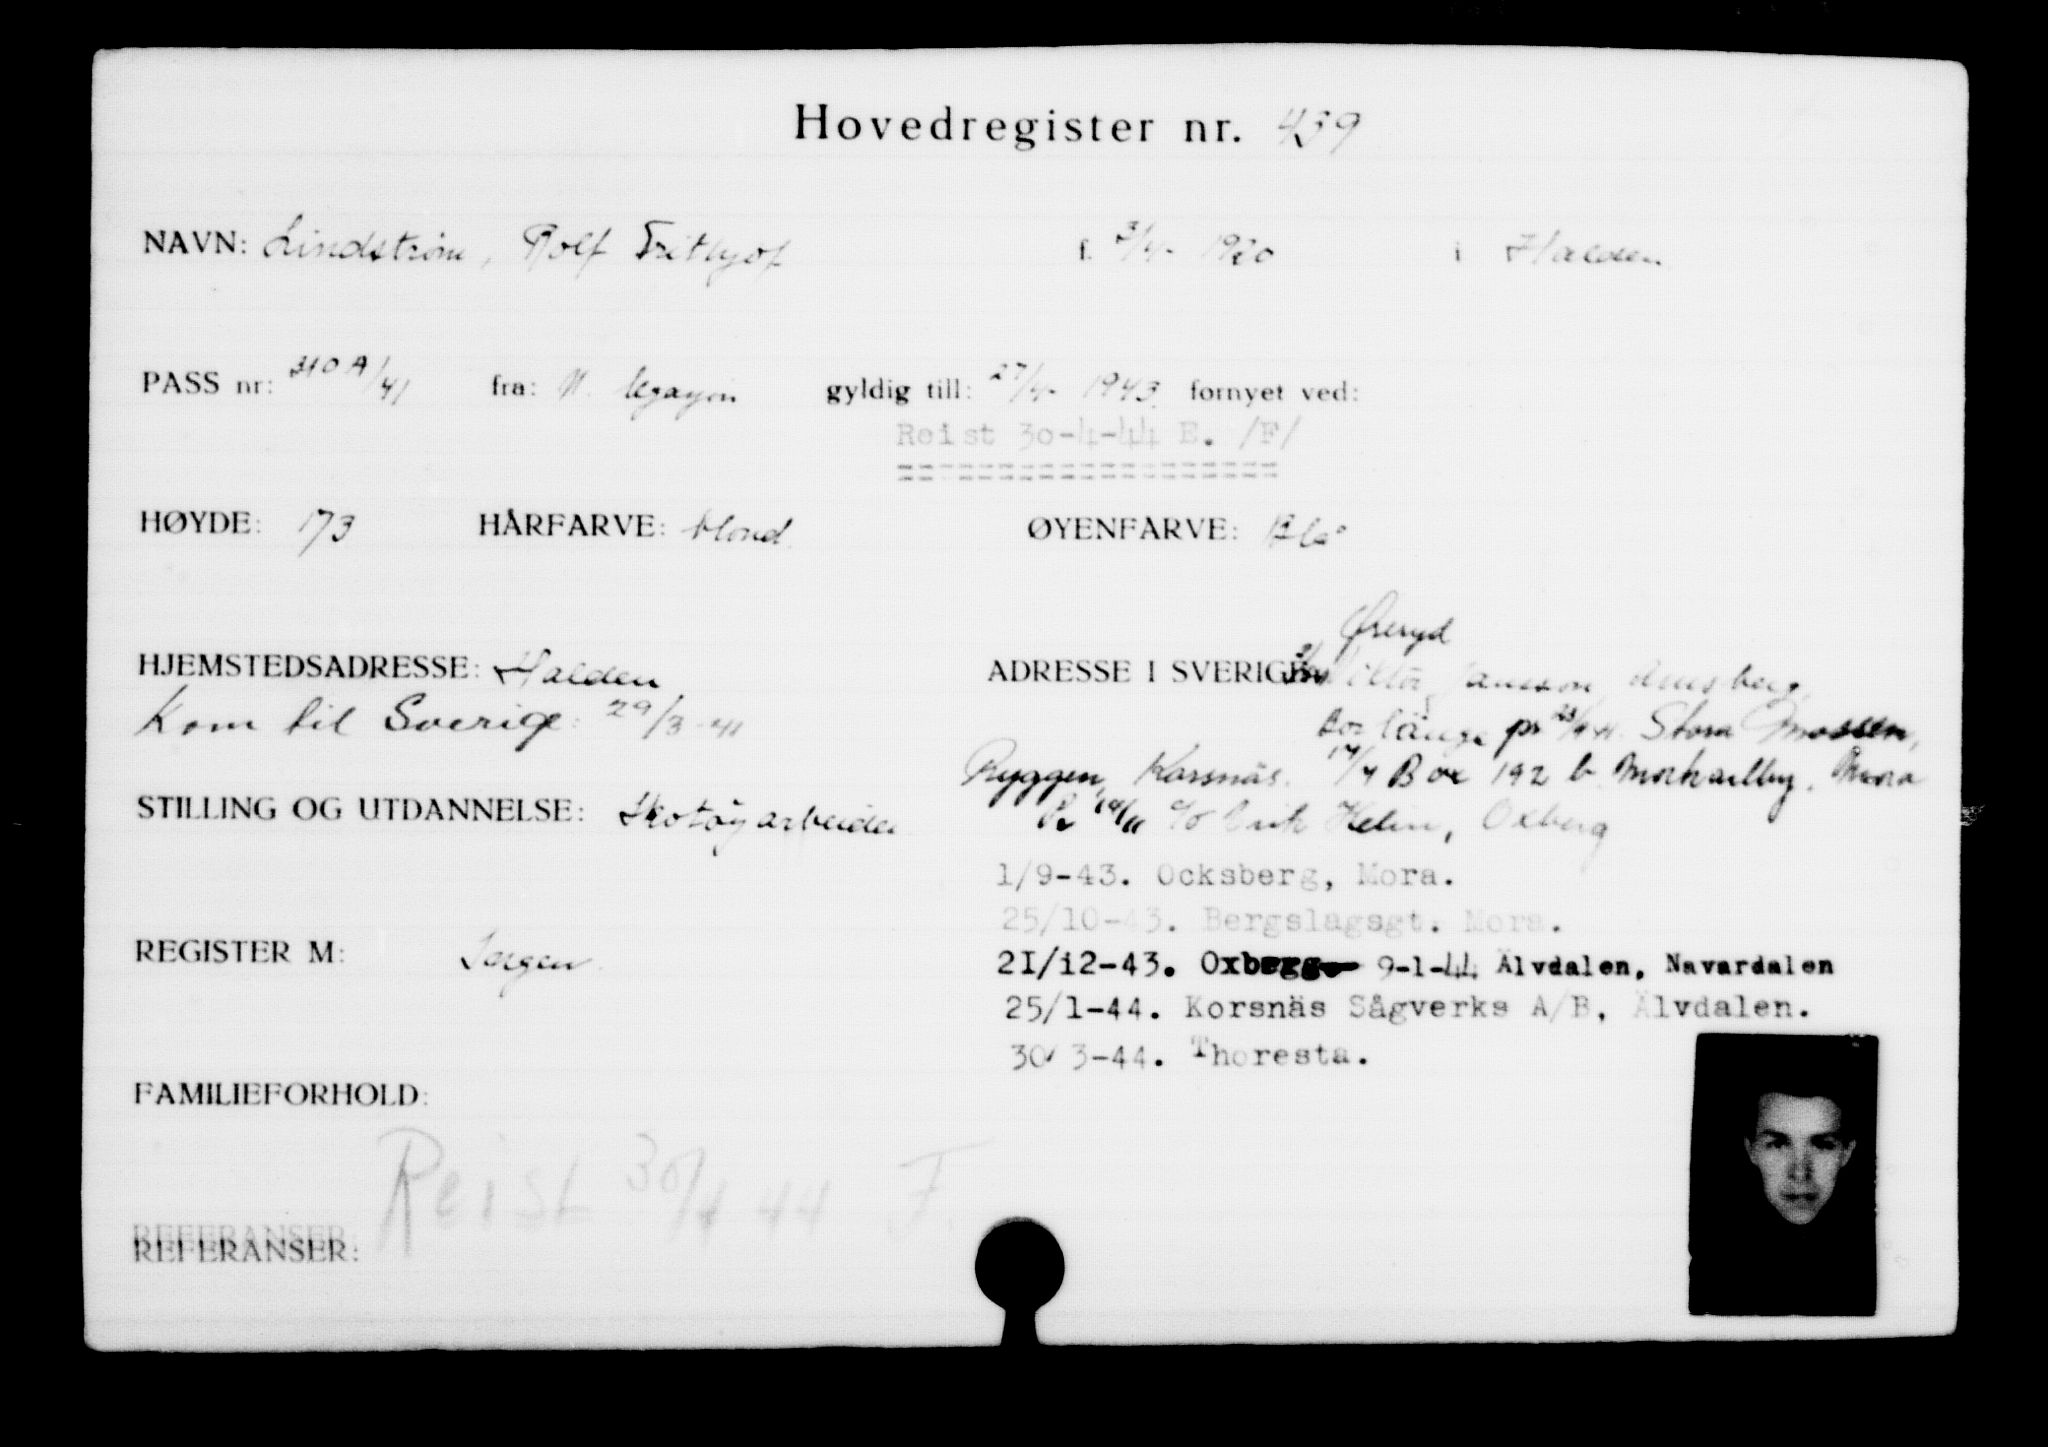 Hovedregister nr. 439
NAVN: Lindstrøm, Rolf Frithjof f. 3/4- 1920 i Halden
PASS nr: 310 A/41 fra: N. legasjon gyldig till: 27/4- 1943. fornyet ved:
Reist 30-4-44 E. /F/
===================
HØYDE: 173 HÅRFARVE: blond. ØYENFARVE: Blå
HJEMSTEDSADRESSE: Halden
Kom til Sverige: 29/3-41
ADRESSE I SVERIGE: Øreryd
Jansson, Amsberg,
Borlänge pr Stora Mossen,
Ryggen, Korsnäs. 14/4 Box 192 b Morkarlby, Mora
c/o Erik Helin, Oxberg
STILLING OG UTDANNELSE: Skotøyarbeider
1/9-43. Ocksberg, Mora.
25/10-43. Bergslagsgt. Mora.
REGISTER M: Ingen.
21/12-43. Oxberg 9-1-44 Älvdalen, Navardalen
25/1-44. Korsnäs Sågverks A/B, Älvdalen.
30/3-44. Thoresta.
FAMILIEFORHOLD:
Reist 30/4 44 F.
REFERANSER: